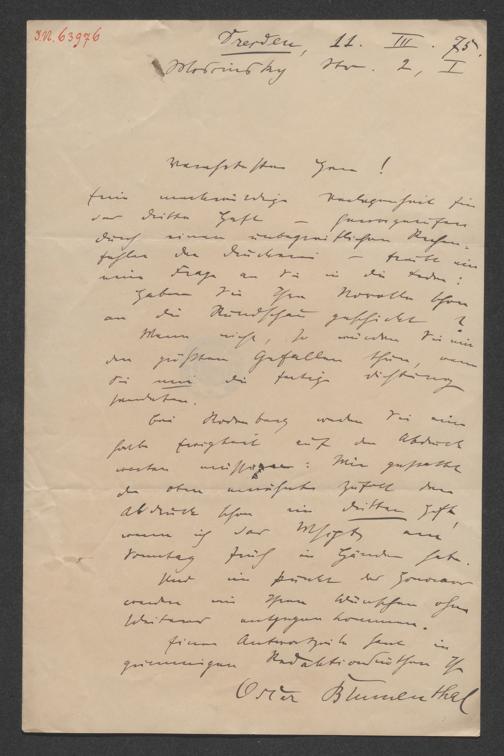 J.N. 63976
Dresden, 11. III. 75.
Mosczinsky Str. 2, I
Verehrtester Herr!
Eine merkwürdige Verlegenheit für
das dritte Heft – hervorgerufen
durch einen unbegreiflichen Rechen-
fehler der Druckerei – drückt mir
eine Frage an Sie in die Feder:
Haben Sie Ihre Novelle schon
an die Rundschau geschickt?
Wenn nicht, so würden Sie mir
den größten Gefallen thun, wenn
Sie mir die fertige Dichtung
sendeten.
Bei Rodenberg werden Sie eine
halbe Ewigkeit auf den Abdruck
warten müssen: Mir gestattet
der oben erwähnte Zufall den
Abdruck schon im dritten Heft,
wenn ich das Mscpt am
Sonntag früh in Händen habe.
Und im Punkt der Honorare
werden wir Ihren Wünschen ohne
Weiteres entgegenkommen.
Einer Antwortzeile harrt in
grimmigen Redaktionsnöthen Ihr
Oscar Blumenthal